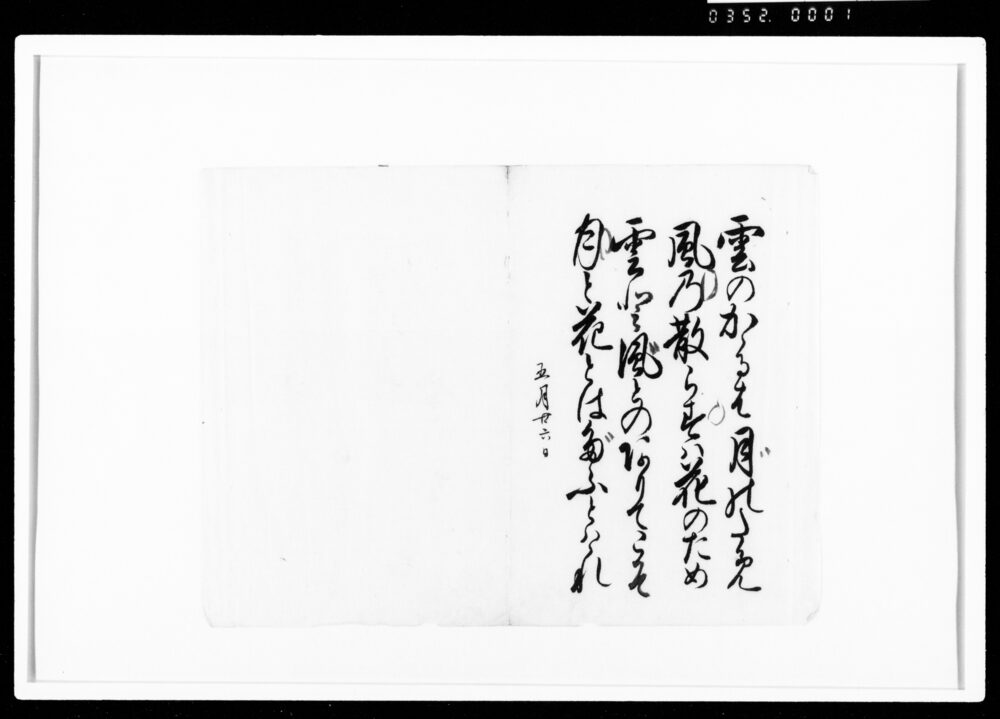 0352. 0001
雲のかゝるは月のため
風乃散らすは花のため
雲と風とのありてこそ
月と花とはたふとけれ
五月廿六日